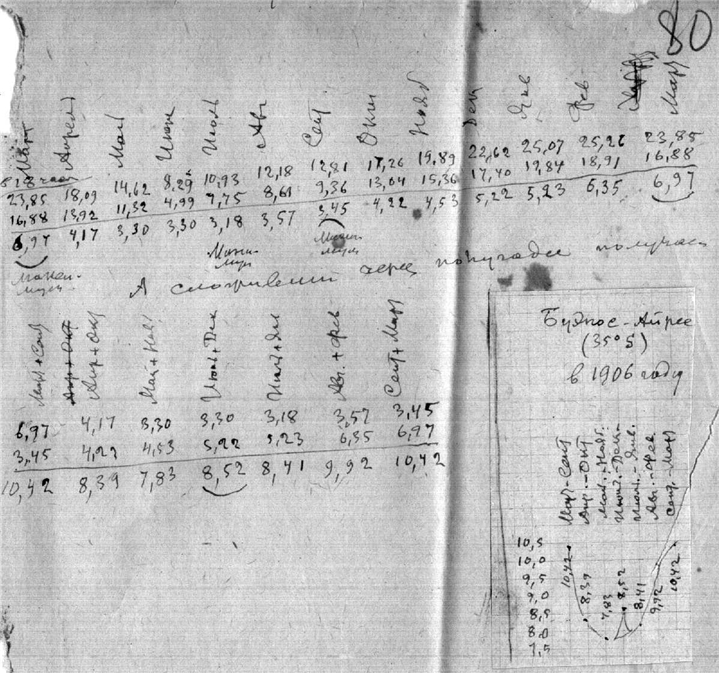 80
Март Апрель Май Июнь Июль Авг Сент Окт Нояб Дек Янв Фев Март
23,85 18,09 14,62 8,29 10,93 12,18 12,81 17,26 19,89 22,62 25,07 25,26 23,85
16,88 13,92 11,32 4,99 7,75 8,61 9,36 13,04 15,36 17,40 19,84 18,91 16,88
6,97 4,17 3,30 3,30 3,18 3,57 3,45 4,22 4,53 5,22 5,23 6,35 6,97
А сложивши через полугодие получаем
Март + Сент Апр + Окт Апр + Окт Май + Нояб Июнь + Дек Июль + Янв Авг. + Фев Сент + Март
6,97 4,17 3,30 3,30 3,18 3,57 3,45
3,45 4,22 4,53 5,22 5,23 6,35 6,97
10,42 8,39 7,83 8,52 8,41 9,92 10,42
Буэнос-Айрес
(35°5)
в 1906 году
Март-Сент Апр.-Окт Май.-Нояб. Июнь-Дек. Июль.-Янв. Авг.-Фев Сент.-Март
10,5
10,0
9,5
9,0
8,5
8,0
7,5
10,42 8,39 7,83 8,52 8,41 9,92 10,42